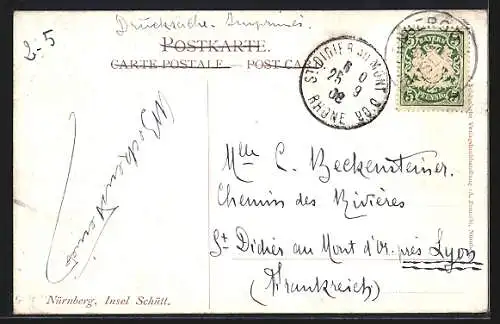 Drucksache. Imprimés.
2-5
POSTKARTE.
CARTE POSTALE. — POST CAR
ST DIDIER AU MONT D'OR
6 0
25 9
08
RHONE
BAYERN
5 5
Mlle C. Beckensteiner.
Chemin des Rivières
St Didier au Mont d'Or près Lyon
(Frankreich)
Nürnberg, Insel Schütt.